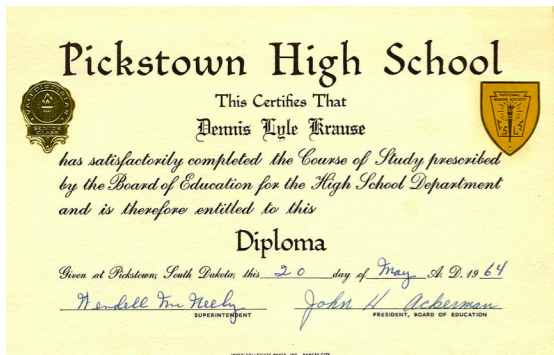 Pickstown High School
This Certifies That
Dennis Lyle Krause
VALEDICTORIAN
SENIOR
NATIONAL
HONOR SOCIETY
has satisfactorily completed the Course of Study prescribed
by the Board of Education for the High School Department
and is therefore entitled to this
Diploma
Given at Pickstown, South Dakota, this 20 day of May A. D. 1964
Wendell Mc Neely
SUPERINTENDENT
John H Ackerman
PRESIDENT, BOARD OF EDUCATION